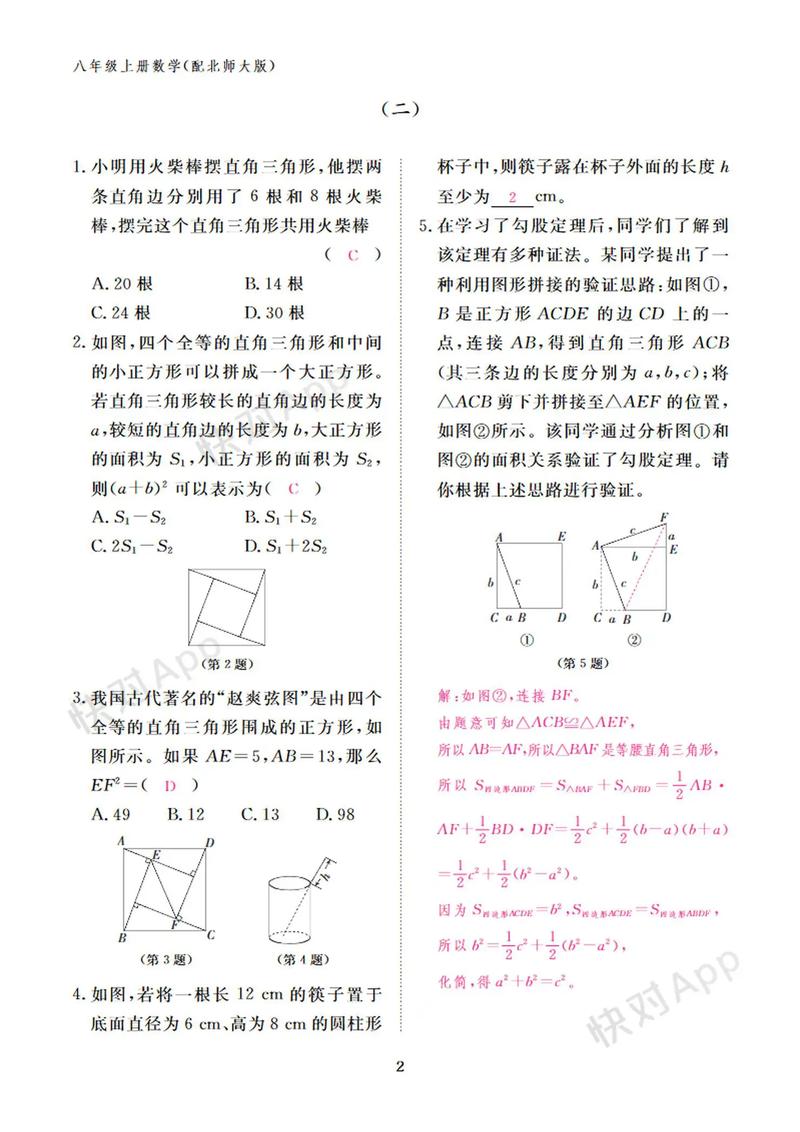 八年级上册数学(配北师大版)
(二)
1. 小明用火柴棒摆直角三角形,他摆两
条直角边分别用了 6 根和 8 根火柴
棒,摆完这个直角三角形共用火柴棒
( C )
A. 20 根 B. 14 根
C. 24 根 D. 30 根
2. 如图,四个全等的直角三角形和中间
的小正方形可以拼成一个大正方形。
若直角三角形较长的直角边的长度为
a,较短的直角边的长度为 b,大正方形
的面积为 S₁,小正方形的面积为 S₂,
则(a+b)² 可以表示为( C )
A. S₁-S₂ B. S₁+S₂
C. 2S₁-S₂ D. S₁+2S₂
(第 2 题)
3. 我国古代著名的“赵爽弦图”是由四个
全等的直角三角形围成的正方形,如
图所示。如果 AE=5,AB=13,那么
EF²=( D )
A. 49 B. 12 C. 13 D. 98
A D
E
F
B C
h
(第 3 题) (第 4 题)
4. 如图,若将一根长 12 cm 的筷子置于
底面直径为 6 cm、高为 8 cm 的圆柱形
杯子中,则筷子露在杯子外面的长度 h
至少为 2 cm。
5. 在学习了勾股定理后,同学们了解到
该定理有多种证法。某同学提出了一
种利用图形拼接的验证思路:如图①,
B 是正方形 ACDE 的边 CD 上的一
点,连接 AB,得到直角三角形 ACB
(其三条边的长度分别为 a,b,c);将
△ACB 剪下并拼接至△AEF 的位置,
如图②所示。该同学通过分析图①和
图②的面积关系验证了勾股定理。请
你根据上述思路进行验证。
A E
b c
C a B D
①
F
c a
A b E
b c
C a B D
②
(第 5 题)
解:如图②,连接 BF。
由题意可知△ACB≌△AEF,
所以 AB=AF,所以△BAF 是等腰直角三角形,
所以 S四边形ABDF=S△BAF+S△FBD=1/2 AB·
AF+1/2 BD·DF=1/2 c²+1/2 (b-a)(b+a)
=1/2 c²+1/2 (b²-a²)。
因为 S四边形ACDE=b²,S四边形ACDE=S四边形ABDF,
所以 b²=1/2 c²+1/2 (b²-a²),
化简,得 a²+b²=c²。
2
快对App
快对App
快对App